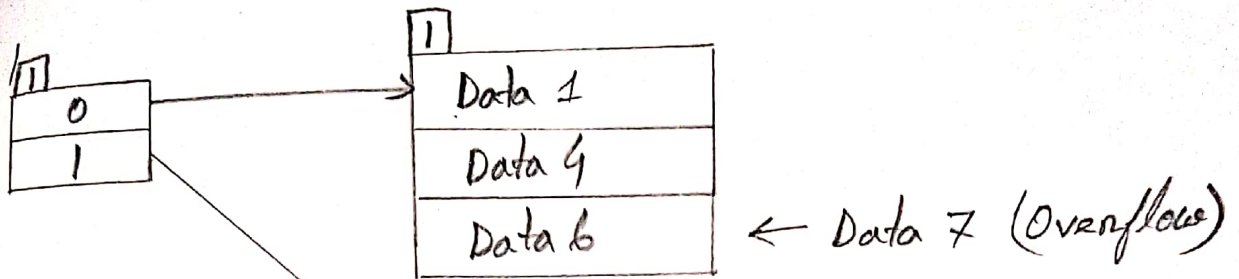 1
1
0
Data 1
1
Data 4
Data 6
← Data 7 (Overflow)